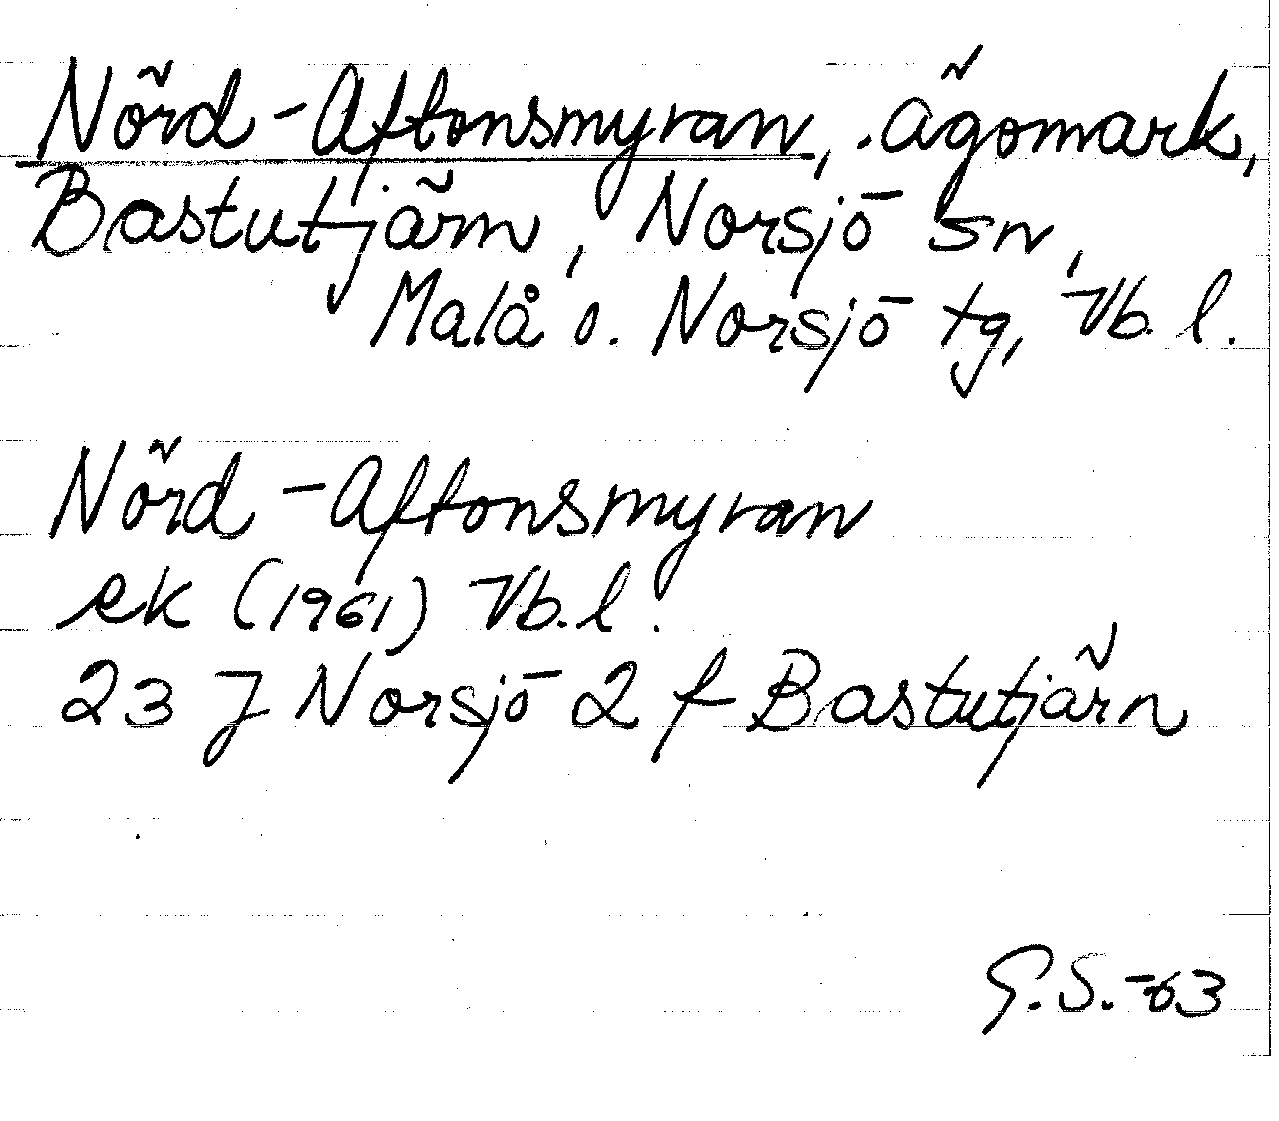 Nörd-Aftonsmyran, ägomark,
Bastutjärn, Norsjö sn,
Malå o. Norsjö tg, Vb. l.
Nörd-Aftonsmyran
ek (1961) Vb. l.
23 J Norsjö 2 f Bastutjärn
G.S.-63